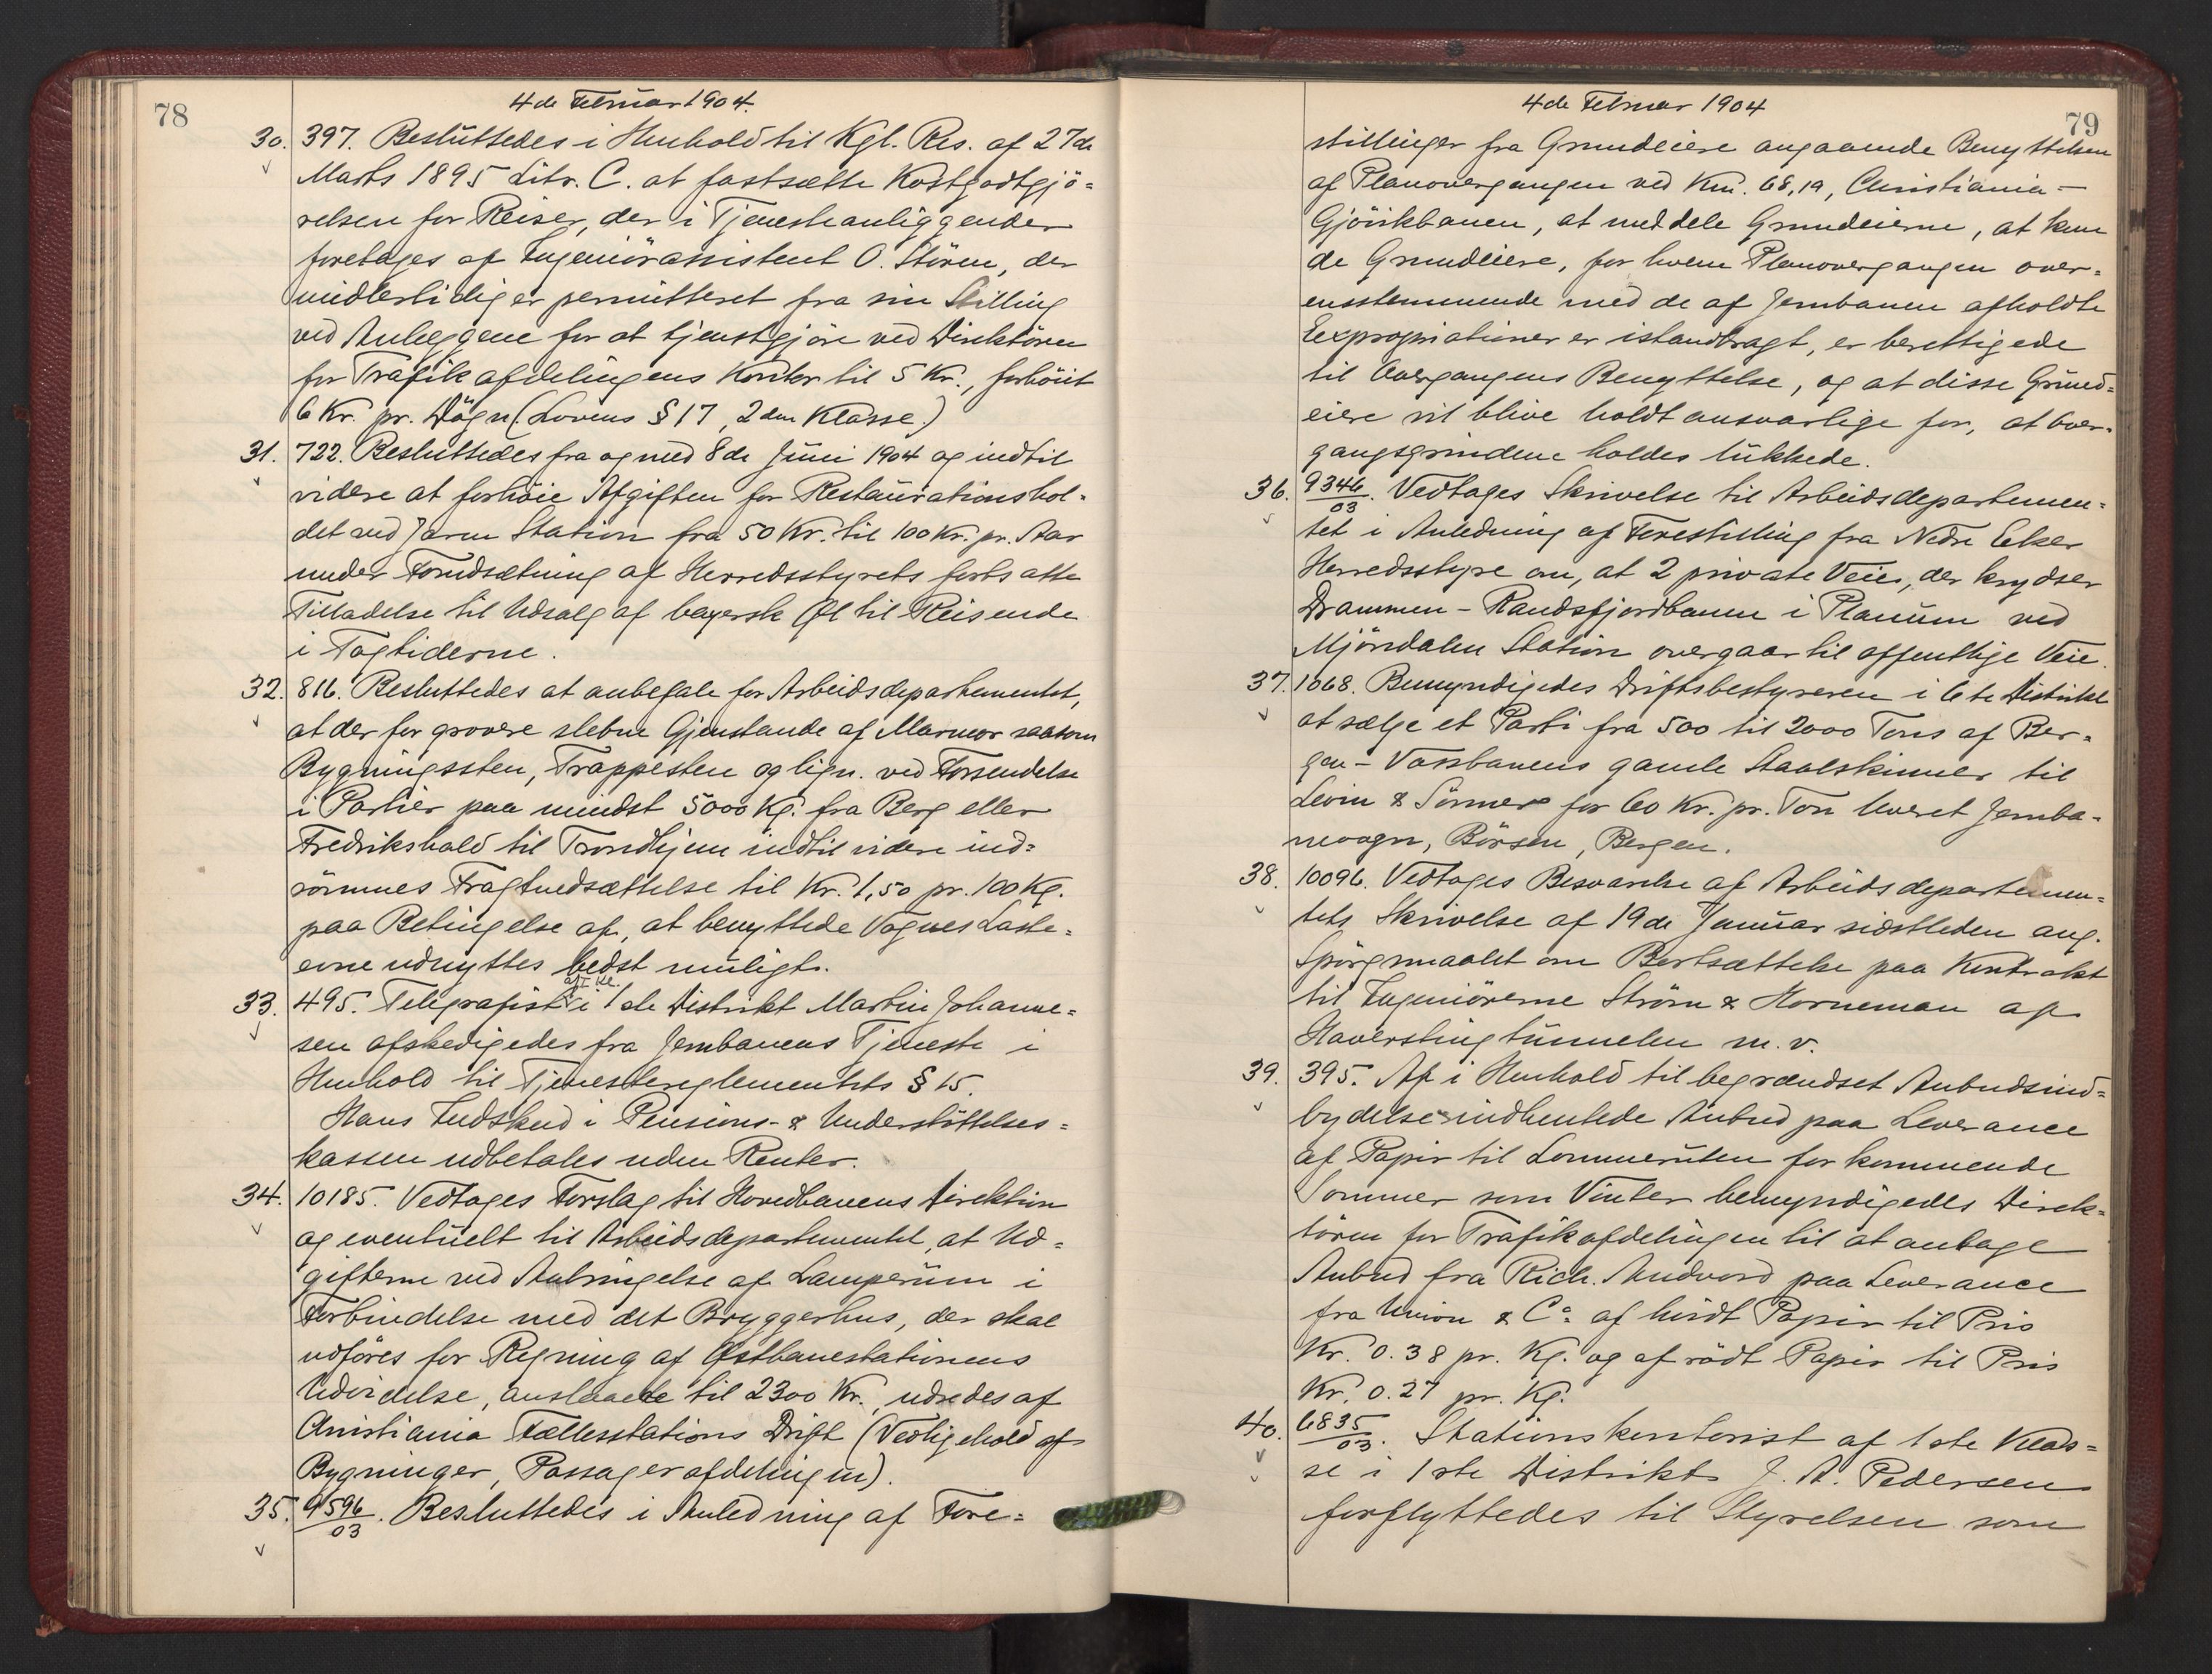 78
4de Februar 1904.
30. 397. Besluttedes i Henhold til Kgl. Res. af 27de
Marts 1895 Litr. C. at fastsætte Kostgodtgjö=
relsen for Reiser, der i Tjenesteanliggender
foretages af Ingeniörassistent O. Stören, der
midlertidig er permitteret fra sin Stilling
ved Anlæggene for at tjenstgjöre ved Direktören
for Trafikafdelingens Kontor til 5 Kr., forhöiet
6 Kr. pr. Dögn (Lovens § 17, 2den Klasse.)
31. 722. Besluttedes fra og med 8de Juni 1904 og indtil
videre at forhöie Afgiften for Restaurationshol=
det ved Jaren Station fra 50 Kr. til 100 Kr. pr. Aar
under Forudsætning af Herredsstyrets fortsatte
Tilladelse til Udsalg af bayersk Øl til Reisende
i Togtiderne.
32. 816. Besluttedes at anbefale for Arbeidsdepartementet,
at der for grovere slebne Gjenstande af Marmor saasom
Bygningssten, Trappesten og lign. ved Forsendelse
i Partier paa mindst 5000 Kg. fra Berg eller
Fredrikshald til Trondhjem indtil videre ind=
römmes Fragtnedsættelse til Kr. 1,50 pr. 100 Kg.
paa Betingelse af, at benyttede Vognes Laste=
evne udnyttes bedst muligt.
af I Kl.
33. 495. Telegrafist i 1ste Distrikt Martin Johanne=
sen afskedigedes fra Jernbanens Tjeneste i
Henhold til Tjenestereglementets § 15.
Hans Indskud i Pensions- & Understöttelses=
kassen udbetales uden Renter.
34. 10185. Vedtages Forslag til Hovedbanens Direktion
og eventuelt til Arbeidsdepartementet, at Ud=
gifterne ved Anbringelse af Lamperum i
Forbindelse med det Bryggerhus, der skal
udföres for Regning af Østbanestationens
Udvidelse, anslaaede til 2300 Kr., udredes af
Christiania Fællesstations Drift (Vedligehold af
Bygninger, Passagerafdelingen).
35. 9596/03. Besluttedes i Anledning af Fore=
79
4de Februar 1904
stillinger fra Grundeiere angaaende Benyttelsen
af Planovergangen ved Km. 68,19, Christiania-
Gjövikbanen, at meddele Grundeierne, at kun
de Grundeiere, for hvem Planovergangen over=
ensstemmende med de af Jernbanen afholdte
Expropriationer er istandbragt, er berettigede
til Overgangens Benyttelse, og at disse Grund=
eiere vil blive holdt ansvarlige for, at Over=
gangsgrindene holdes lukkede.
36. 9346/03. Vedtages Skrivelse til Arbeidsdepartemen=
tet i Anledning af Forestilling fra Nedre Eker
Herredsstyre om, at 2 private Veie, der krydser
Drammen - Randsfjordbanen i Planum ved
Mjöndalen Station overgaar til offentlige Veie.
37. 1068. Bemyndigedes Driftsbestyreren i 6te Distrikt
at sælge et Parti fra 500 til 2000 Tons af Ber=
gen - Vossbanens gamle Staalskinner til
Levin & Sönner for 60 Kr. pr. Ton leveret Jernba=
nevogn, Börsen, Bergen.
38. 10096. Vedtages Besvarelse af Arbeidsdepartemen=
tets Skrivelse af 19de Januar sidstleden ang.
Spörgsmaalet om Bortsættelse paa Kontrakt
til Ingeniörerne Ström & Horneman af
Haverstingtunnelen m. v.
39. 395. Af i Henhold til begrændset Anbudsind=
bydelse indhentede Anbud paa Leverance
af Papir til Lommeruten for kommende
Sommer som Vinter bemyndigedes Direk=
tören for Trafikafdelingen til at antage
Anbud fra Rich. Andvord paa Leverance
fra Union & Co af hvidt Papir til Pris
Kr. 0.38 pr. Kg. og af rödt Papir til Pris
Kr. 0.27 pr. Kg.
40. 6835/03. Stationskontorist af 1ste Klas=
se i 1ste Distrikt J. A. Pedersen
forflyttedes til Styrelsen som